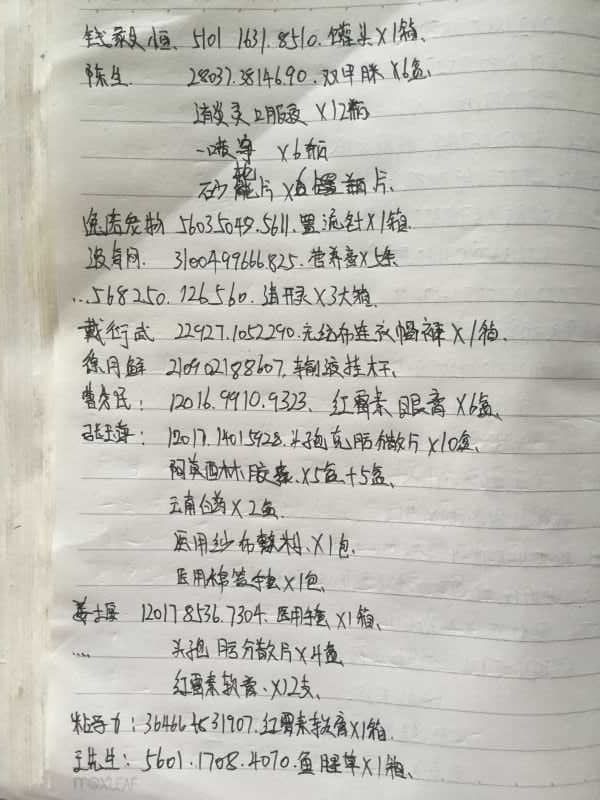 钱毅恒、5101 1631.8510.罐头×1箱、
陈生. 28037.38146.90.双甲脒×6盒、
消炎灵口服液×12瓶
一喷净 ×6瓶
片×片、
宠物 56035049.5611.置流针×1箱.
3100499666825.营养膏×5条
...568250.126560.消开灵×3大箱.
戴衍武 22927.1052290.无纺布连衣帽裤×1箱.
徐月鲜 210902188607.输液挂杆、
曹秀民: 12016.9910.9323、红霉素眼膏×6盒、
张玉海: 12017.14015928.头孢克肟分散片×10盒、
阿莫西林胶囊.×5盒+5盒、
云南白药×2盒.
医用纱布敷料.×1包.
医用棉签×1包、
姜 12017 8536.7304.医用×1箱、
.... 头孢肟分散片×4盒
红霉素软膏.×12支、
粘子力:364664531907.红霉素软膏×1箱.
王先生:5601.1708.4070.鱼腥草×1箱、
moxLEAF